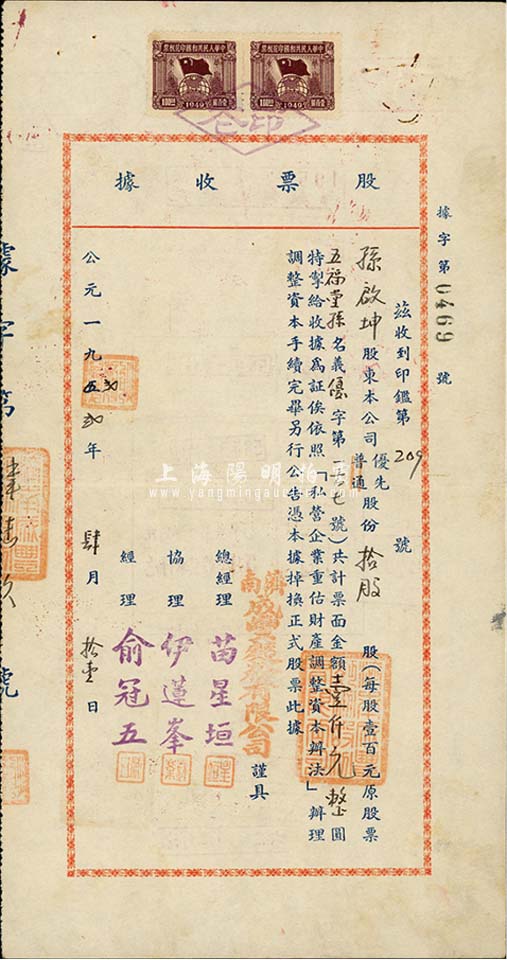 中華人民共和國印花稅票
100圓
1949
壹百圓
中華人民共和國印花稅票
100圓
1949
壹百圓
股票收據
據字第0469號
茲收到印鑑第209號
孫啟坤股東本公司優先普通股份拾股股(每股壹百元原股票
五福堂孫名義優字第 號)共計票面金額壹仟元整圓
特掣給收據為証俟依照「私營企業重估財產調整資本辦法」辦理
調整資本手續完畢另行公告憑本據掉換正式股票此據
濟南成豐 有限公司謹具
總經理苗星垣
協理伊蓮峯
經理俞冠五
公元一九五貳年肆月拾壹日
據字第
號
上海陽明拍賣
www.yangmingauction.com